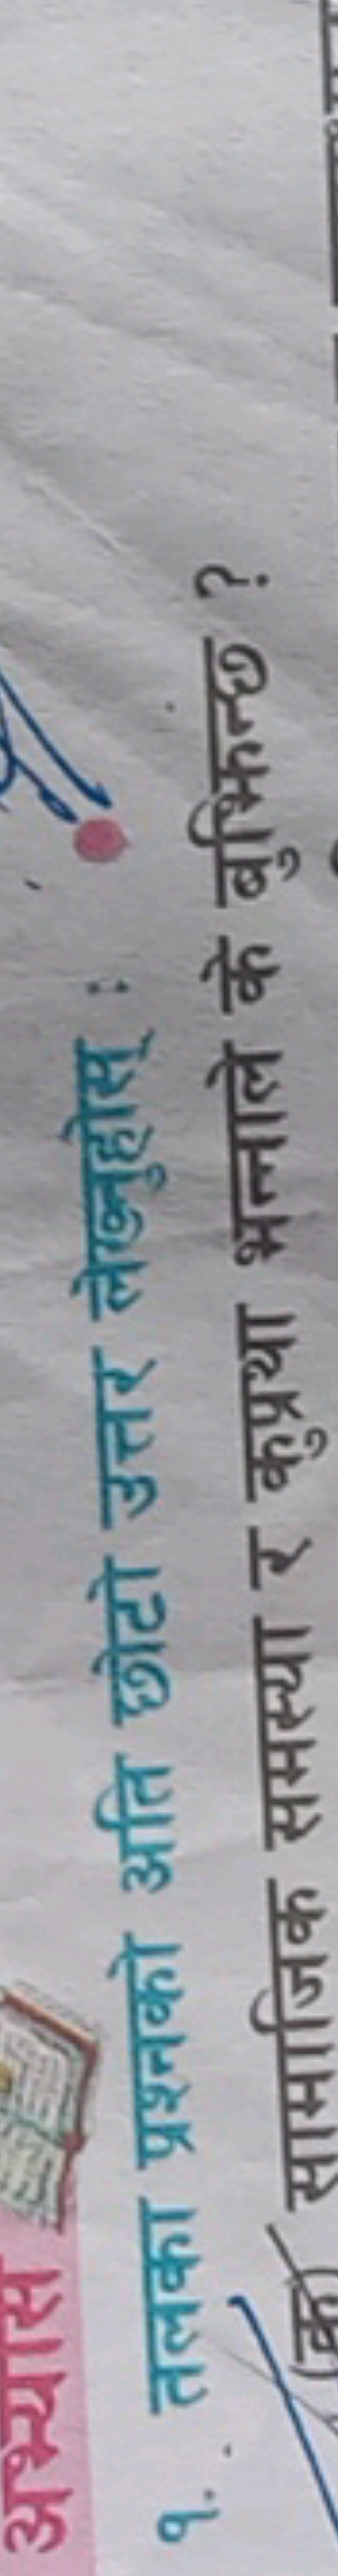 अभ्यास
१. तलका प्रश्नको अति छोटो उत्तर लेख्नुहोस् :
(क) सामाजिक समस्या र कुप्रथा भन्नाले के बुझिन्छ ?